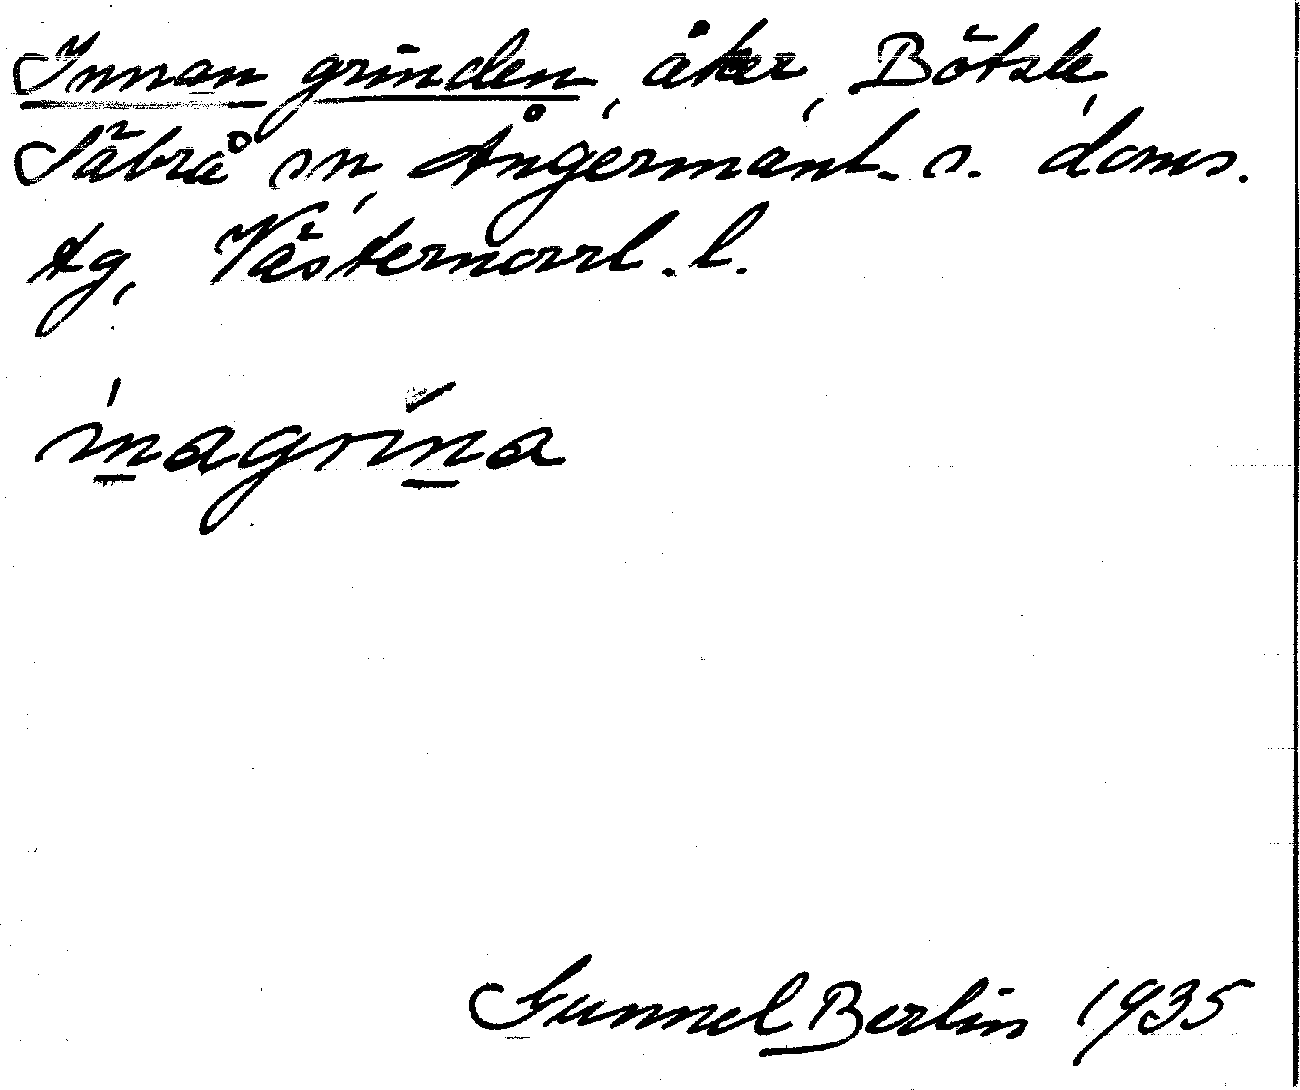 Innan grinden, åker, Bötsle,
Säbrå sn, Ångermanl. s. doms.
tg, Västernorrl. l.
ìnagrína
Gunnel Berlin 1935